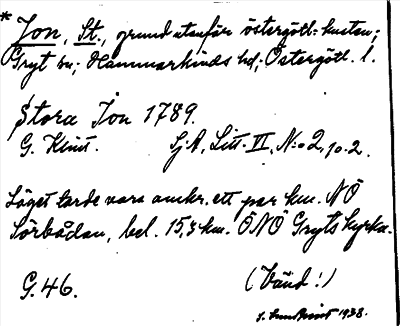 * Jon, St., grund utanför östergötl. kusten;
Gryt sn; Hammarkinds hd; Östergötl. l.
Stora Jon 1789.
G. Klint. Sj.A, Litt. II, N:o 2, 10.2.
Läget torde vara omkr. ett par km. NÖ
Sörbådan, bel. 15,3 km. ÖNÖ Gryts kyrka.
G. 46. (Vänd!)
1938.